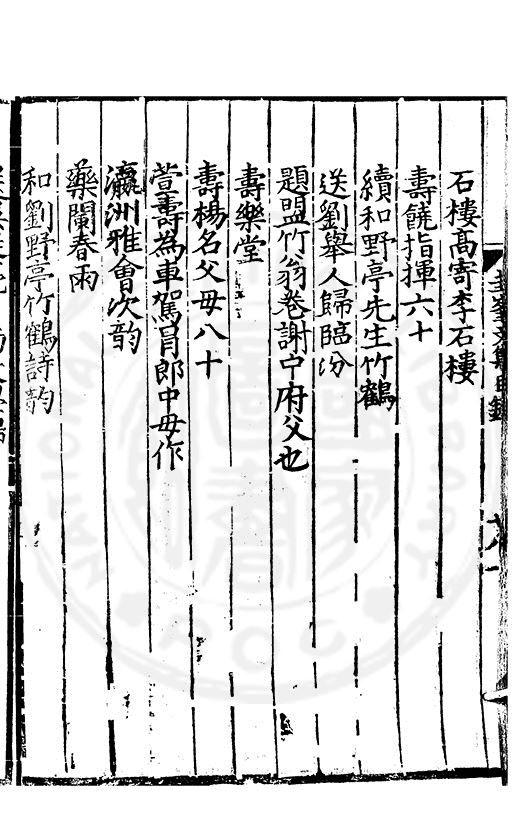 石樓髙寄李石樓
壽饒指揮六十
續和野亭先生竹鶴
送劉舉人歸臨汾
題盟竹翁卷謝中府父也
壽樂堂
壽楊名父母八十
萱壽為車駕肎郎中母作
瀛洲雅會次韵
藥闌春雨
和劉野亭竹鶴詩韵